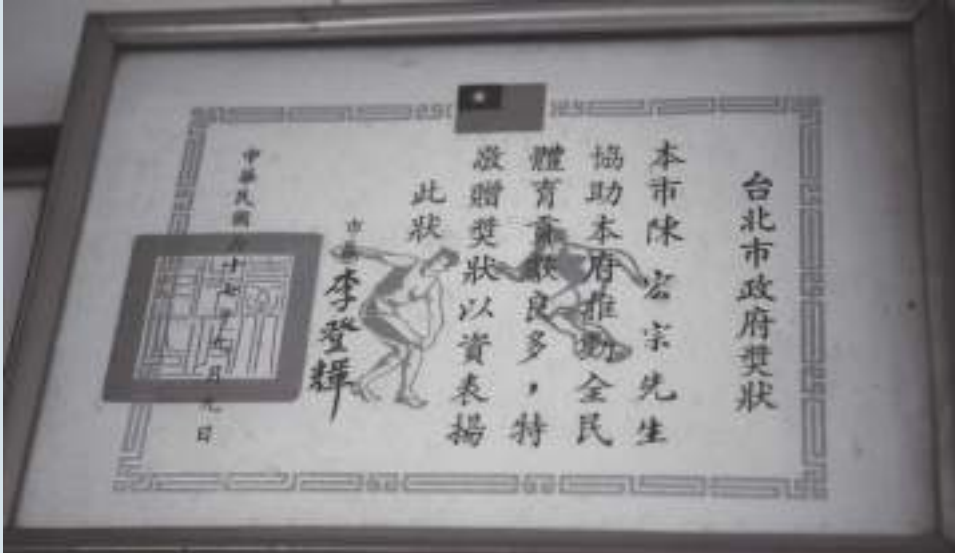 台北市政府獎狀
本市陳宏宗先生
協助本府推動全民
體育貢獻良多，特
敬贈獎狀以資表揚
此狀
市長 李登輝
中華民國六十七年九月九日